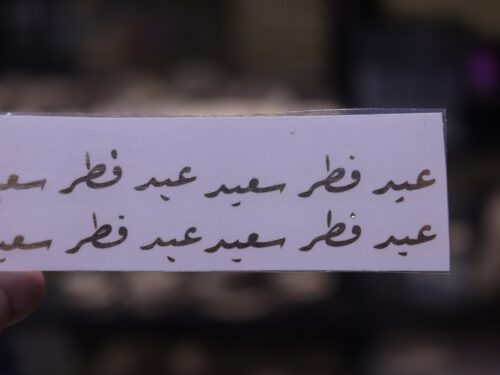 عيد فطر سعيد عيد فطر سعيد
عيد فطر سعيد عيد فطر سعيد